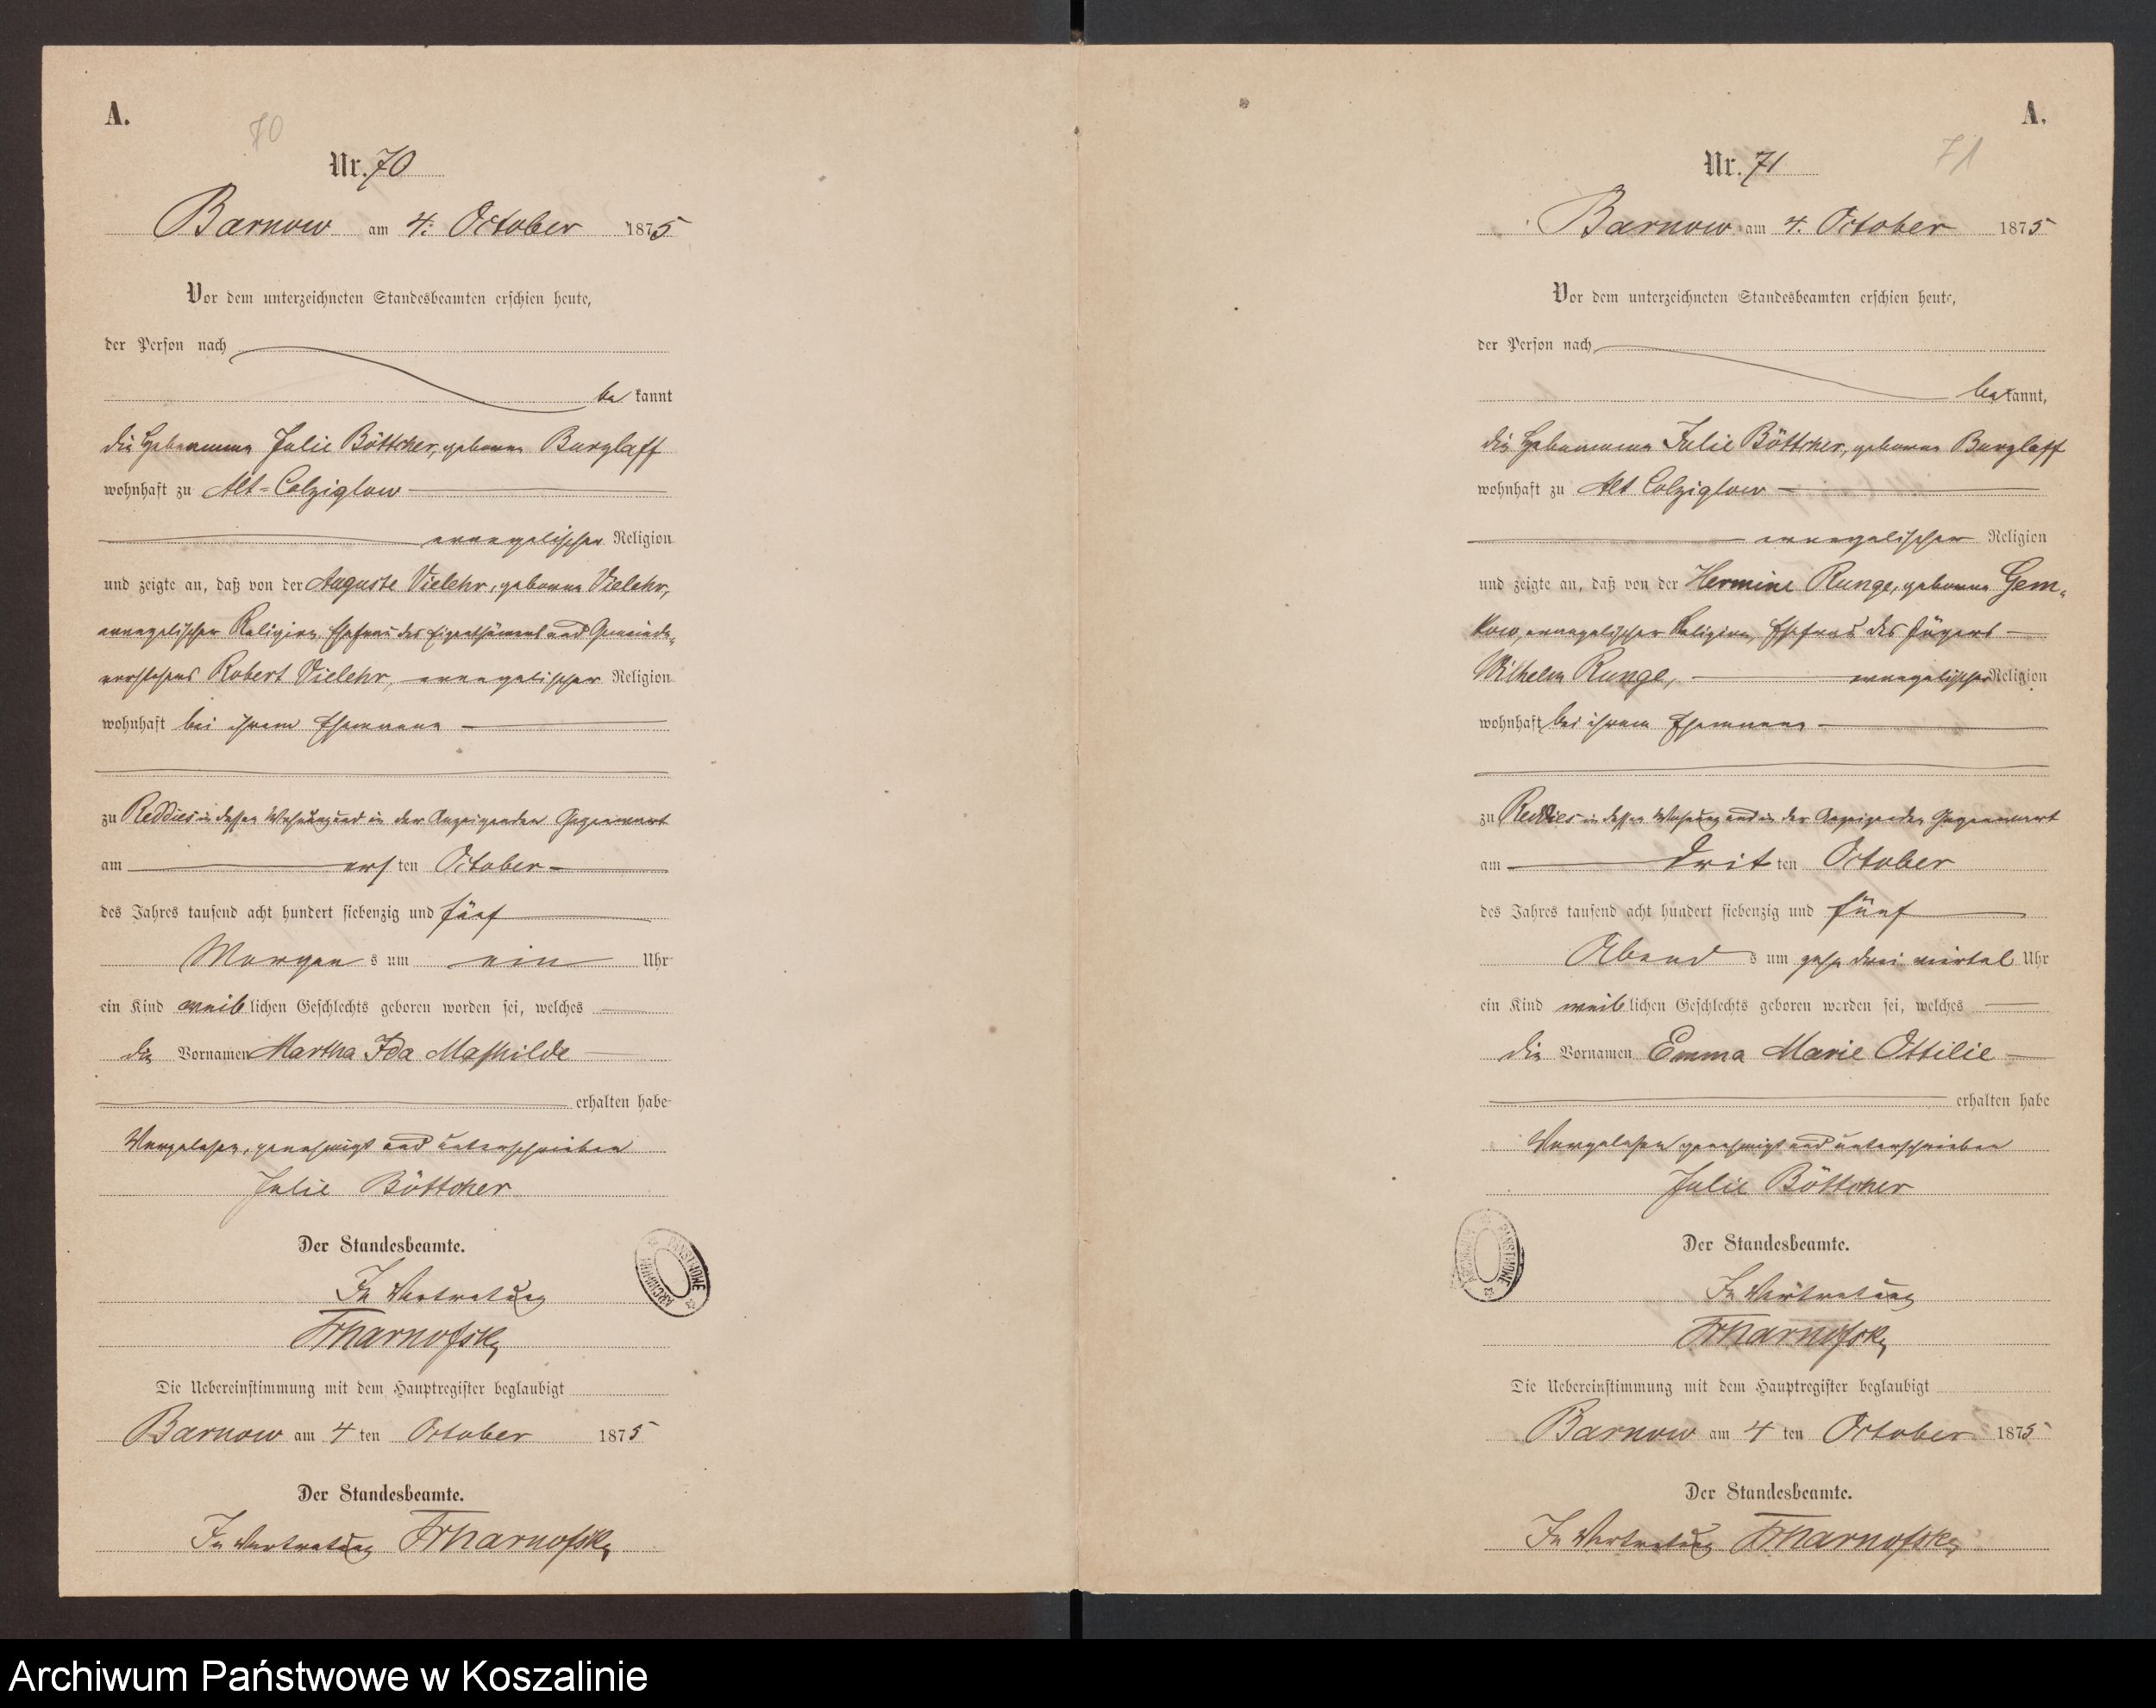 A.
70
Nr. 70
Barnow am 4. October 1875
Vor dem unterzeichneten Standesbeamten erschien heute,
der Person nach
be kannt
die Hebeamme Julie Böttcher, geborne Burzlaff
wohnhaft zu Alt-Colziglow
evangelischer Religion
und zeigte an, daß von der Auguste Vielehr, geborne Vielehr,
evangelischer Religion, Ehefrau des Eigenthümers und Gemeinde-
vorstehers Robert Vielehr, evangelischer Religion
wohnhaft bei ihrem Ehemann
zu Reddies in dessen Wohnung und in der Anzeigenden Gegenwart
am ersten October
des Jahres tausend acht hundert siebenzig und fünf
Morgens um ein Uhr
ein Kind weiblichen Geschlechts geboren worden sei, welches
die Vornamen Martha Ida Mathilde
erhalten habe
Vorgelesen, genehmigt und unterschrieben
Julie Böttcher
Der Standesbeamte.
In Vertretung
Die Uebereinstimmung mit dem Hauptregister beglaubigt
Barnow am 4 ten October 1875
Der Standesbeamte.
In Vertretung
ARCHIWUM PAŃSTWOWE
A.
71
Nr. 71
Barnow am 4. October 1875
Vor dem unterzeichneten Standesbeamten erschien heute,
der Person nach
bekannt,
die Hebeamme Julie Böttcher, geborne Burzlaff
wohnhaft zu Alt Colziglow
evangelischer Religion
und zeigte an, daß von der Hermine Runge, geborne Gem-
kow, evangelischer Religion, Ehefrau des Jägers
Wilhelm Runge, evangelischer Religion
wohnhaft bei ihrem Ehemann
zu Reddies in dessen Wohnung und in der Anzeigenden Gegenwart
am dritten October
des Jahres tausend acht hundert siebenzig und fünf
Abends um zehn drei viertel Uhr
ein Kind weiblichen Geschlechts geboren worden sei, welches
die Vornamen Emma Marie Ottilie
erhalten habe
Vorgelesen genehmigt und unterschrieben
Julie Böttcher
Der Standesbeamte.
In Vertretung
Die Uebereinstimmung mit dem Hauptregister beglaubigt
Barnow am 4 ten October 1875
Der Standesbeamte.
In Vertretung
ARCHIWUM PAŃSTWOWE
Archiwum Państwowe w Koszalinie